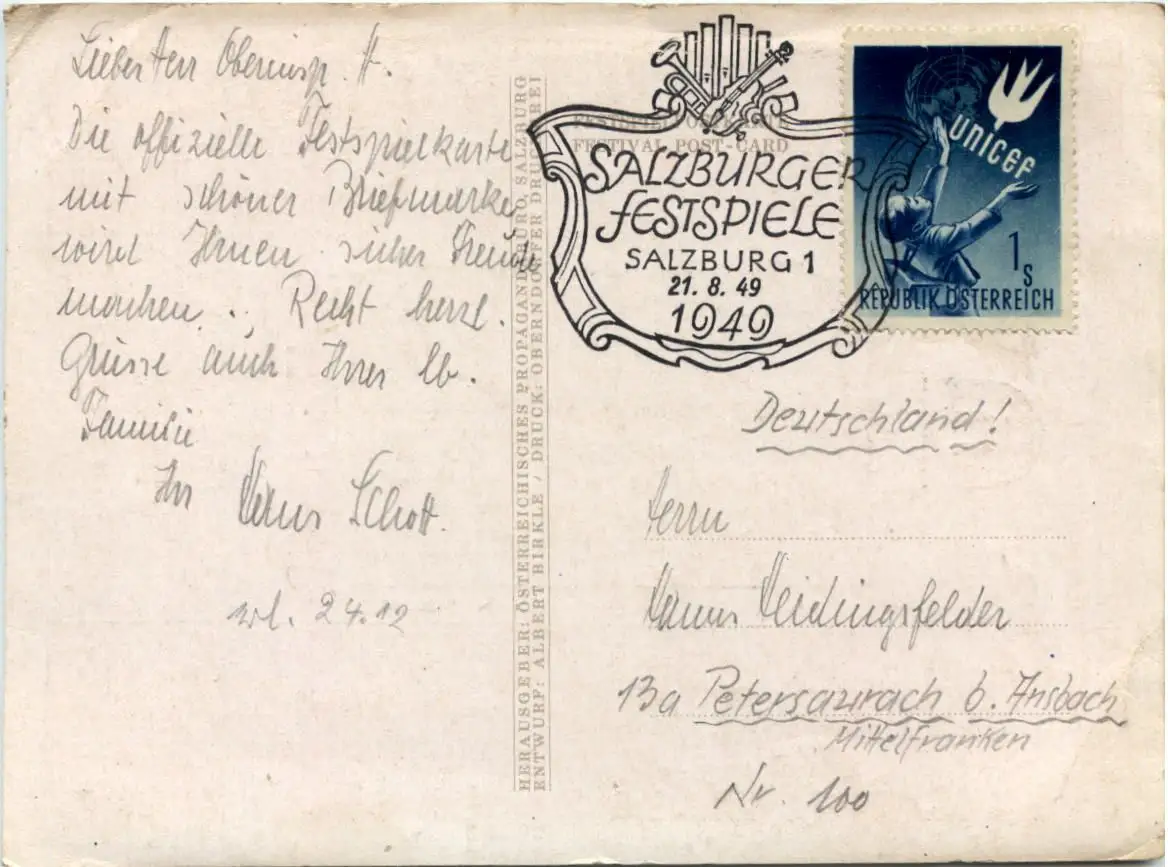 Lieber Herr Oberinsp. H.
Die offizielle Festspielkarte
mit schöner Briefmarke
wird Ihnen sicher Freude
machen. Recht herzl.
Grüsse auch Ihrer lb.
Familie
Ihr Hanns Schott.
24.12
HERAUSGEBER: ÖSTERREICHISCHES PROPAGANDABÜRO, SALZBURG
ENTWURF: ALBERT BIRKLE / DRUCK: OBERNDORFER DRUCKEREI
FESTIVAL POST-CARD
SALZBURGER
FESTSPIELE
SALZBURG 1
21. 8. 49
1949
UNICEF
1 S
REPUBLIK ÖSTERREICH
Deutschland!
Herrn
Hanns Heidingsfelder
13a Petersaurach b. Ansbach
Mittelfranken
Nr. 100